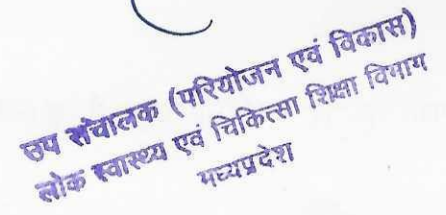 उप संचालक (परियोजन एवं विकास)
लोक स्वास्थ्य एवं चिकित्सा शिक्षा विभाग
मध्यप्रदेश